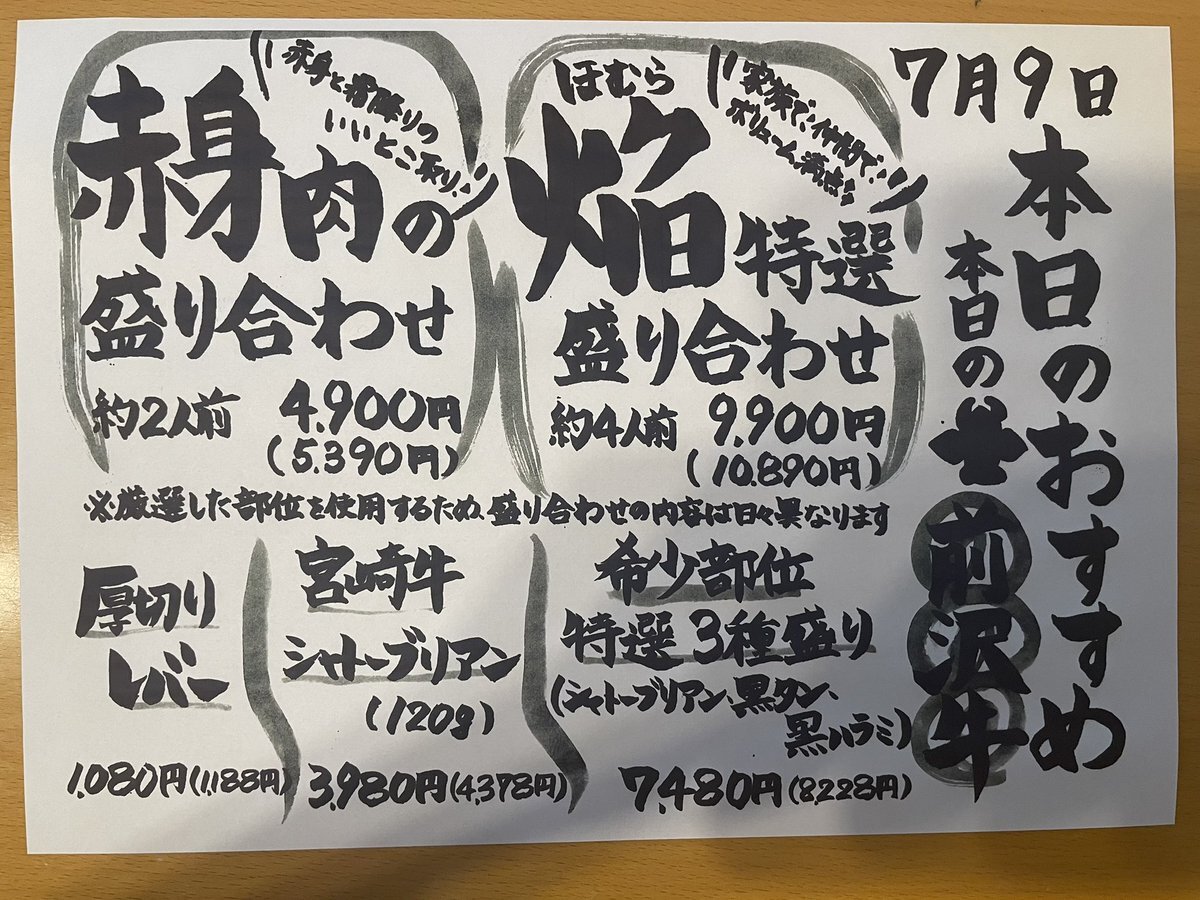 7月9日
本日のおすすめ
本日の
前沢牛
\\家族で、仲間で、
ボリューム満点!!//
ほむら
焔特選
盛り合わせ
約4人前 9,900円
(10,890円)
\\赤身と霜降りの
いいとこ取り、//
赤身肉の
盛り合わせ
約2人前 4,900円
(5,390円)
※厳選した部位を使用するため、盛り合わせの内容は日々異なります
希少部位
特選 3種盛り
(シャトーブリアン、黒タン、
黒ハラミ)
7,480円(8,228円)
宮崎牛
シャトーブリアン
(120g)
3,980円(4,378円)
厚切り
レバー
1,080円(1,188円)